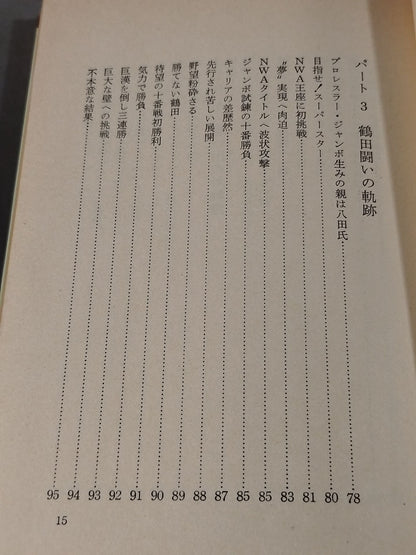 パート 3 鶴田闘いの軌跡
プロレスラー・ジャンボ生みの親は八田氏……78
目指せ！スーパースター……80
NWA王座に初挑戦……81
“夢”実現へ肉迫……83
NWAタイトルへ波状攻撃……85
ジャンボ試錬の十番勝負……85
キャリアの差歴然……87
先行され苦しい展開……88
野望粉砕さる……88
勝てない鶴田……89
待望の十番戦初勝利……90
気力で勝負……91
巨漢を倒し三連勝……92
巨大な壁への挑戦……93
不本意な結果……94
95
15